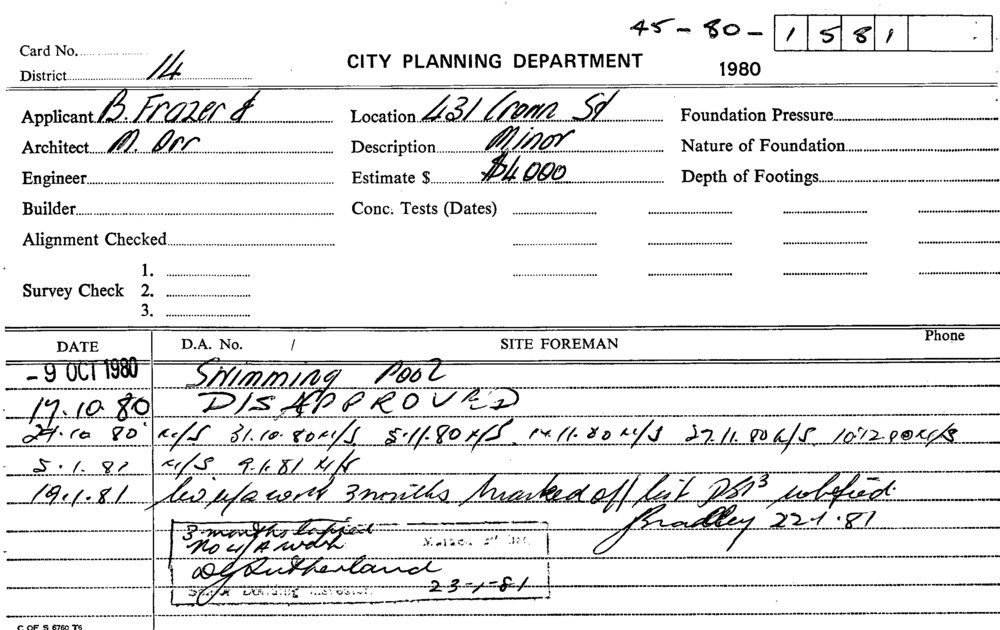 45-80- 1581
Card No.
District 14
CITY PLANNING DEPARTMENT
1980
Applicant B. Frazer &
Location 431 Crown St
Foundation Pressure
Architect M. Orr
Description Minor
Nature of Foundation
Engineer
Estimate $ $4000
Depth of Footings
Builder
Conc. Tests (Dates)
Alignment Checked
Survey Check
1.
2.
3.
DATE D.A. No. / SITE FOREMAN Phone
- 9 OCT 1980 SWIMMING POOL
17.10.80 DISAPPROVED
10 80 N/S 31.10.80 N/S 5.11.80 N/S 14.11.80 N/S 27.11.80 N/S 10.12.80 N/S
5.1.81 N/S 9.1.81 N/S
19.1.81 work 3 months marked off list
Bradley 22.1.81
3 months lapsed
No U/A work
D Sutherland
23-1-81
C OF S 6760 T6